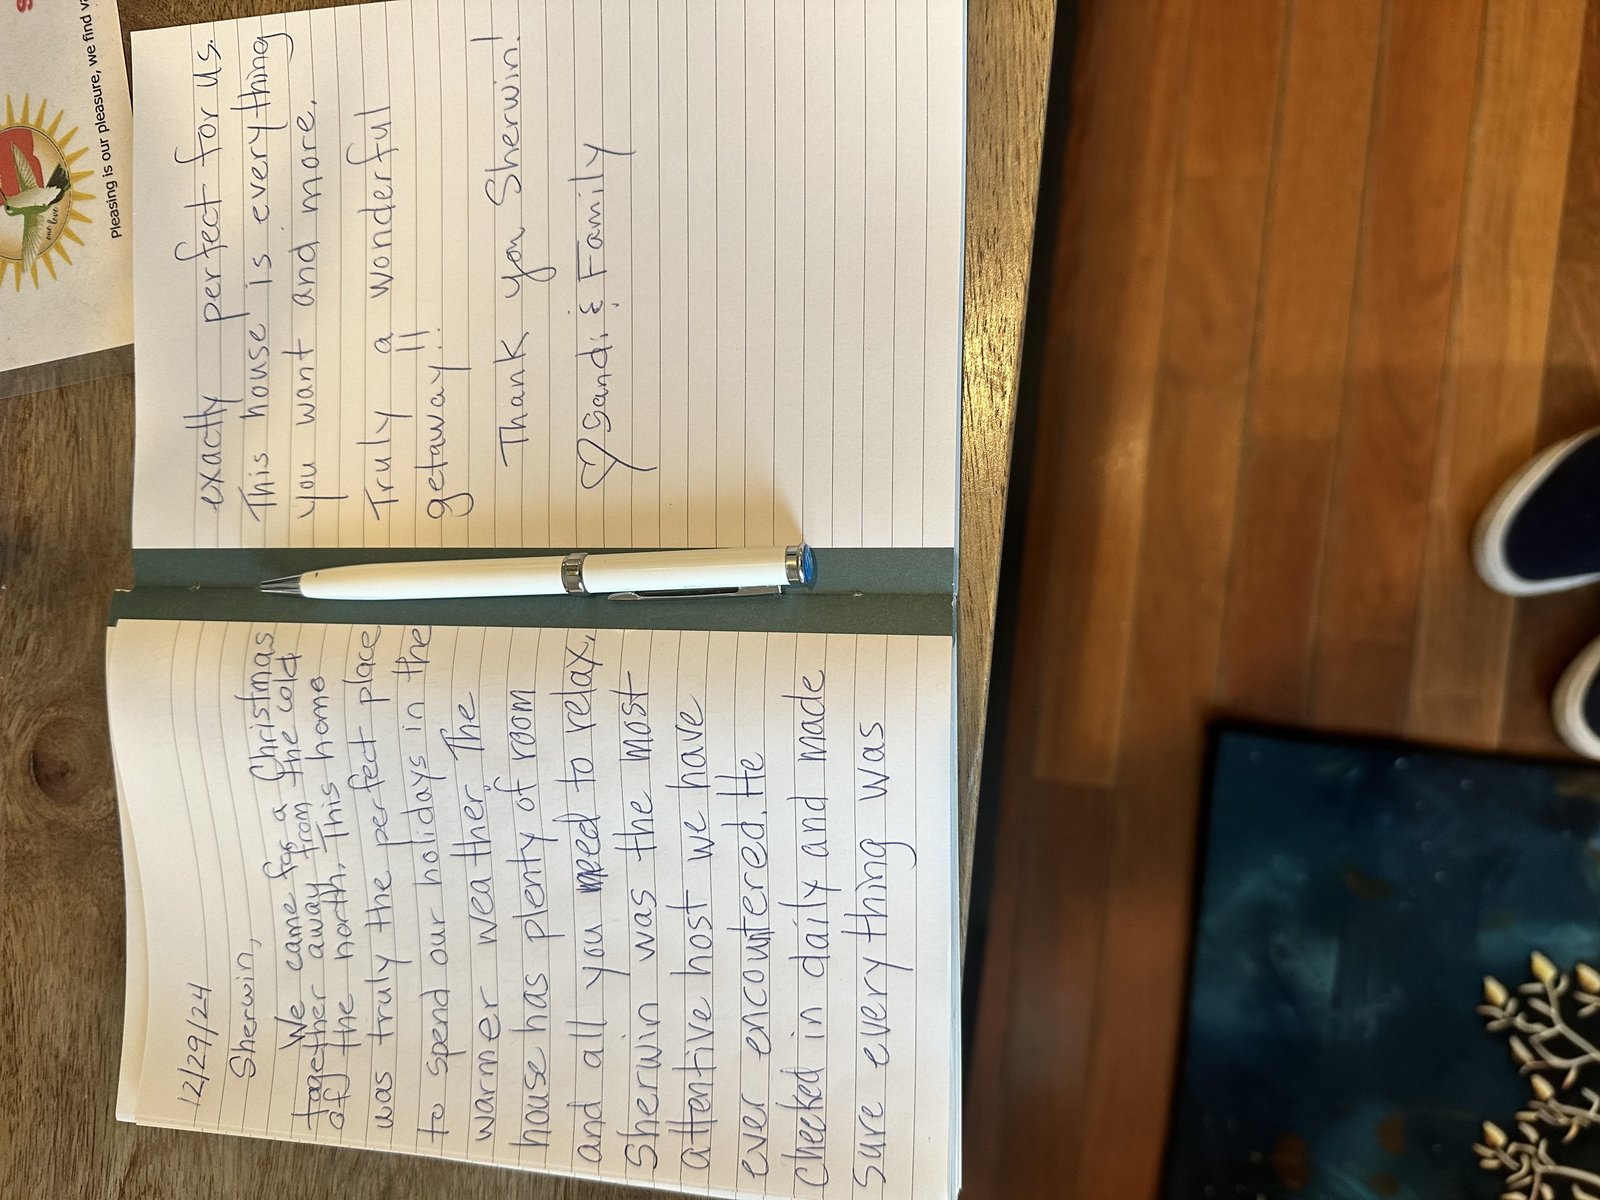 12/29/24
Sherwin,
We came for a Christmas
together away from the cold
of the north. This home
was truly the perfect place
to spend our holidays in the
warmer weather. The
house has plenty of room
and all you need to relax.
Sherwin was the most
attentive host we have
ever encountered. He
checked in daily and made
sure everything was
exactly perfect for us.
This house is everything
you want and more.
Truly a wonderful
getaway!!
Thank you Sherwin!
♡ Sandi & Family
one love
Pleasing is our pleasure, we find